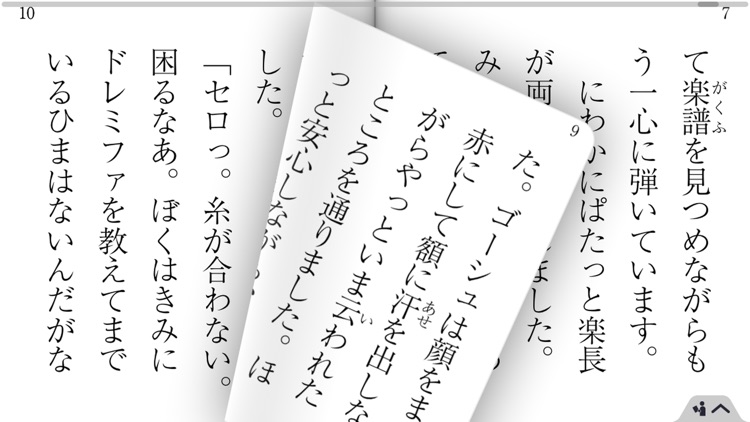 10
7
て楽譜を見つめながらも
がくふ
う一心に弾いています。
にわかにぱたっと楽長
が両
み
ました。
9
た。ゴーシュは顔をま
赤にして額に汗を出しな
あせ
がらやっといま云われた
い
ところを通りました。ほ
っと安心しながら
した。
「セロっ。糸が合わない。
困るなあ。ぼくはきみに
ドレミファを教えてまで
いるひまはないんだがな